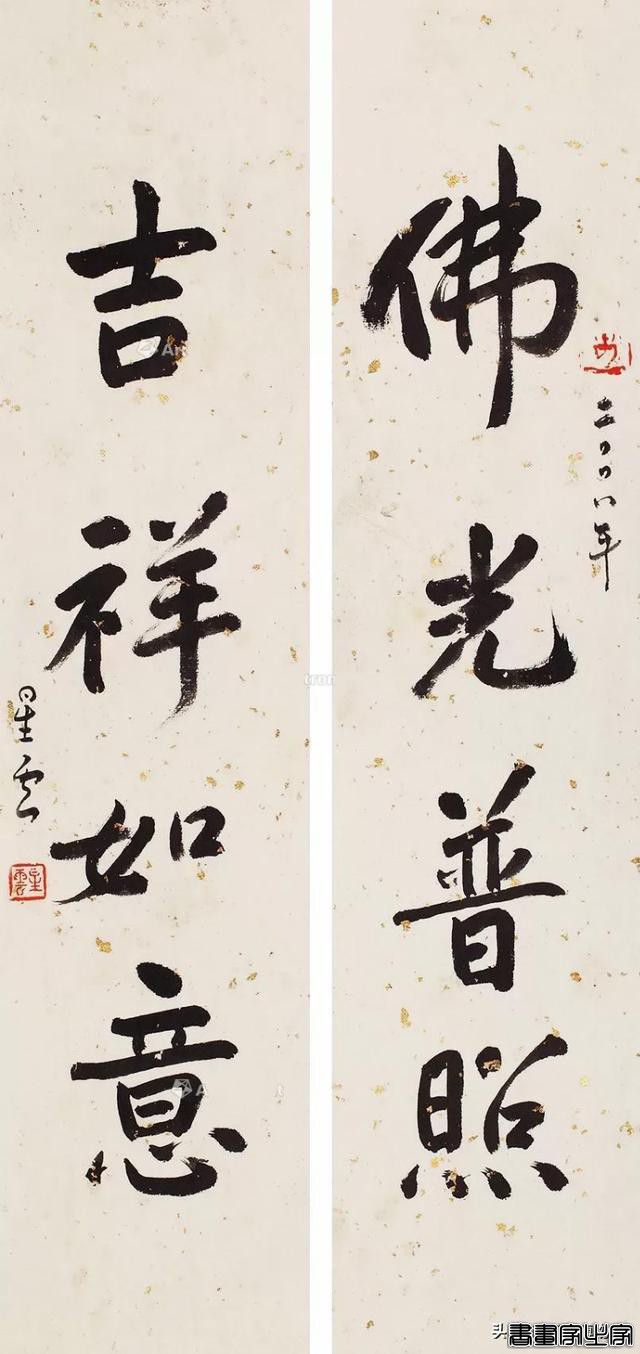 佛光普照
二〇〇八年
吉祥如意
星雲
星雲
書畫家必字